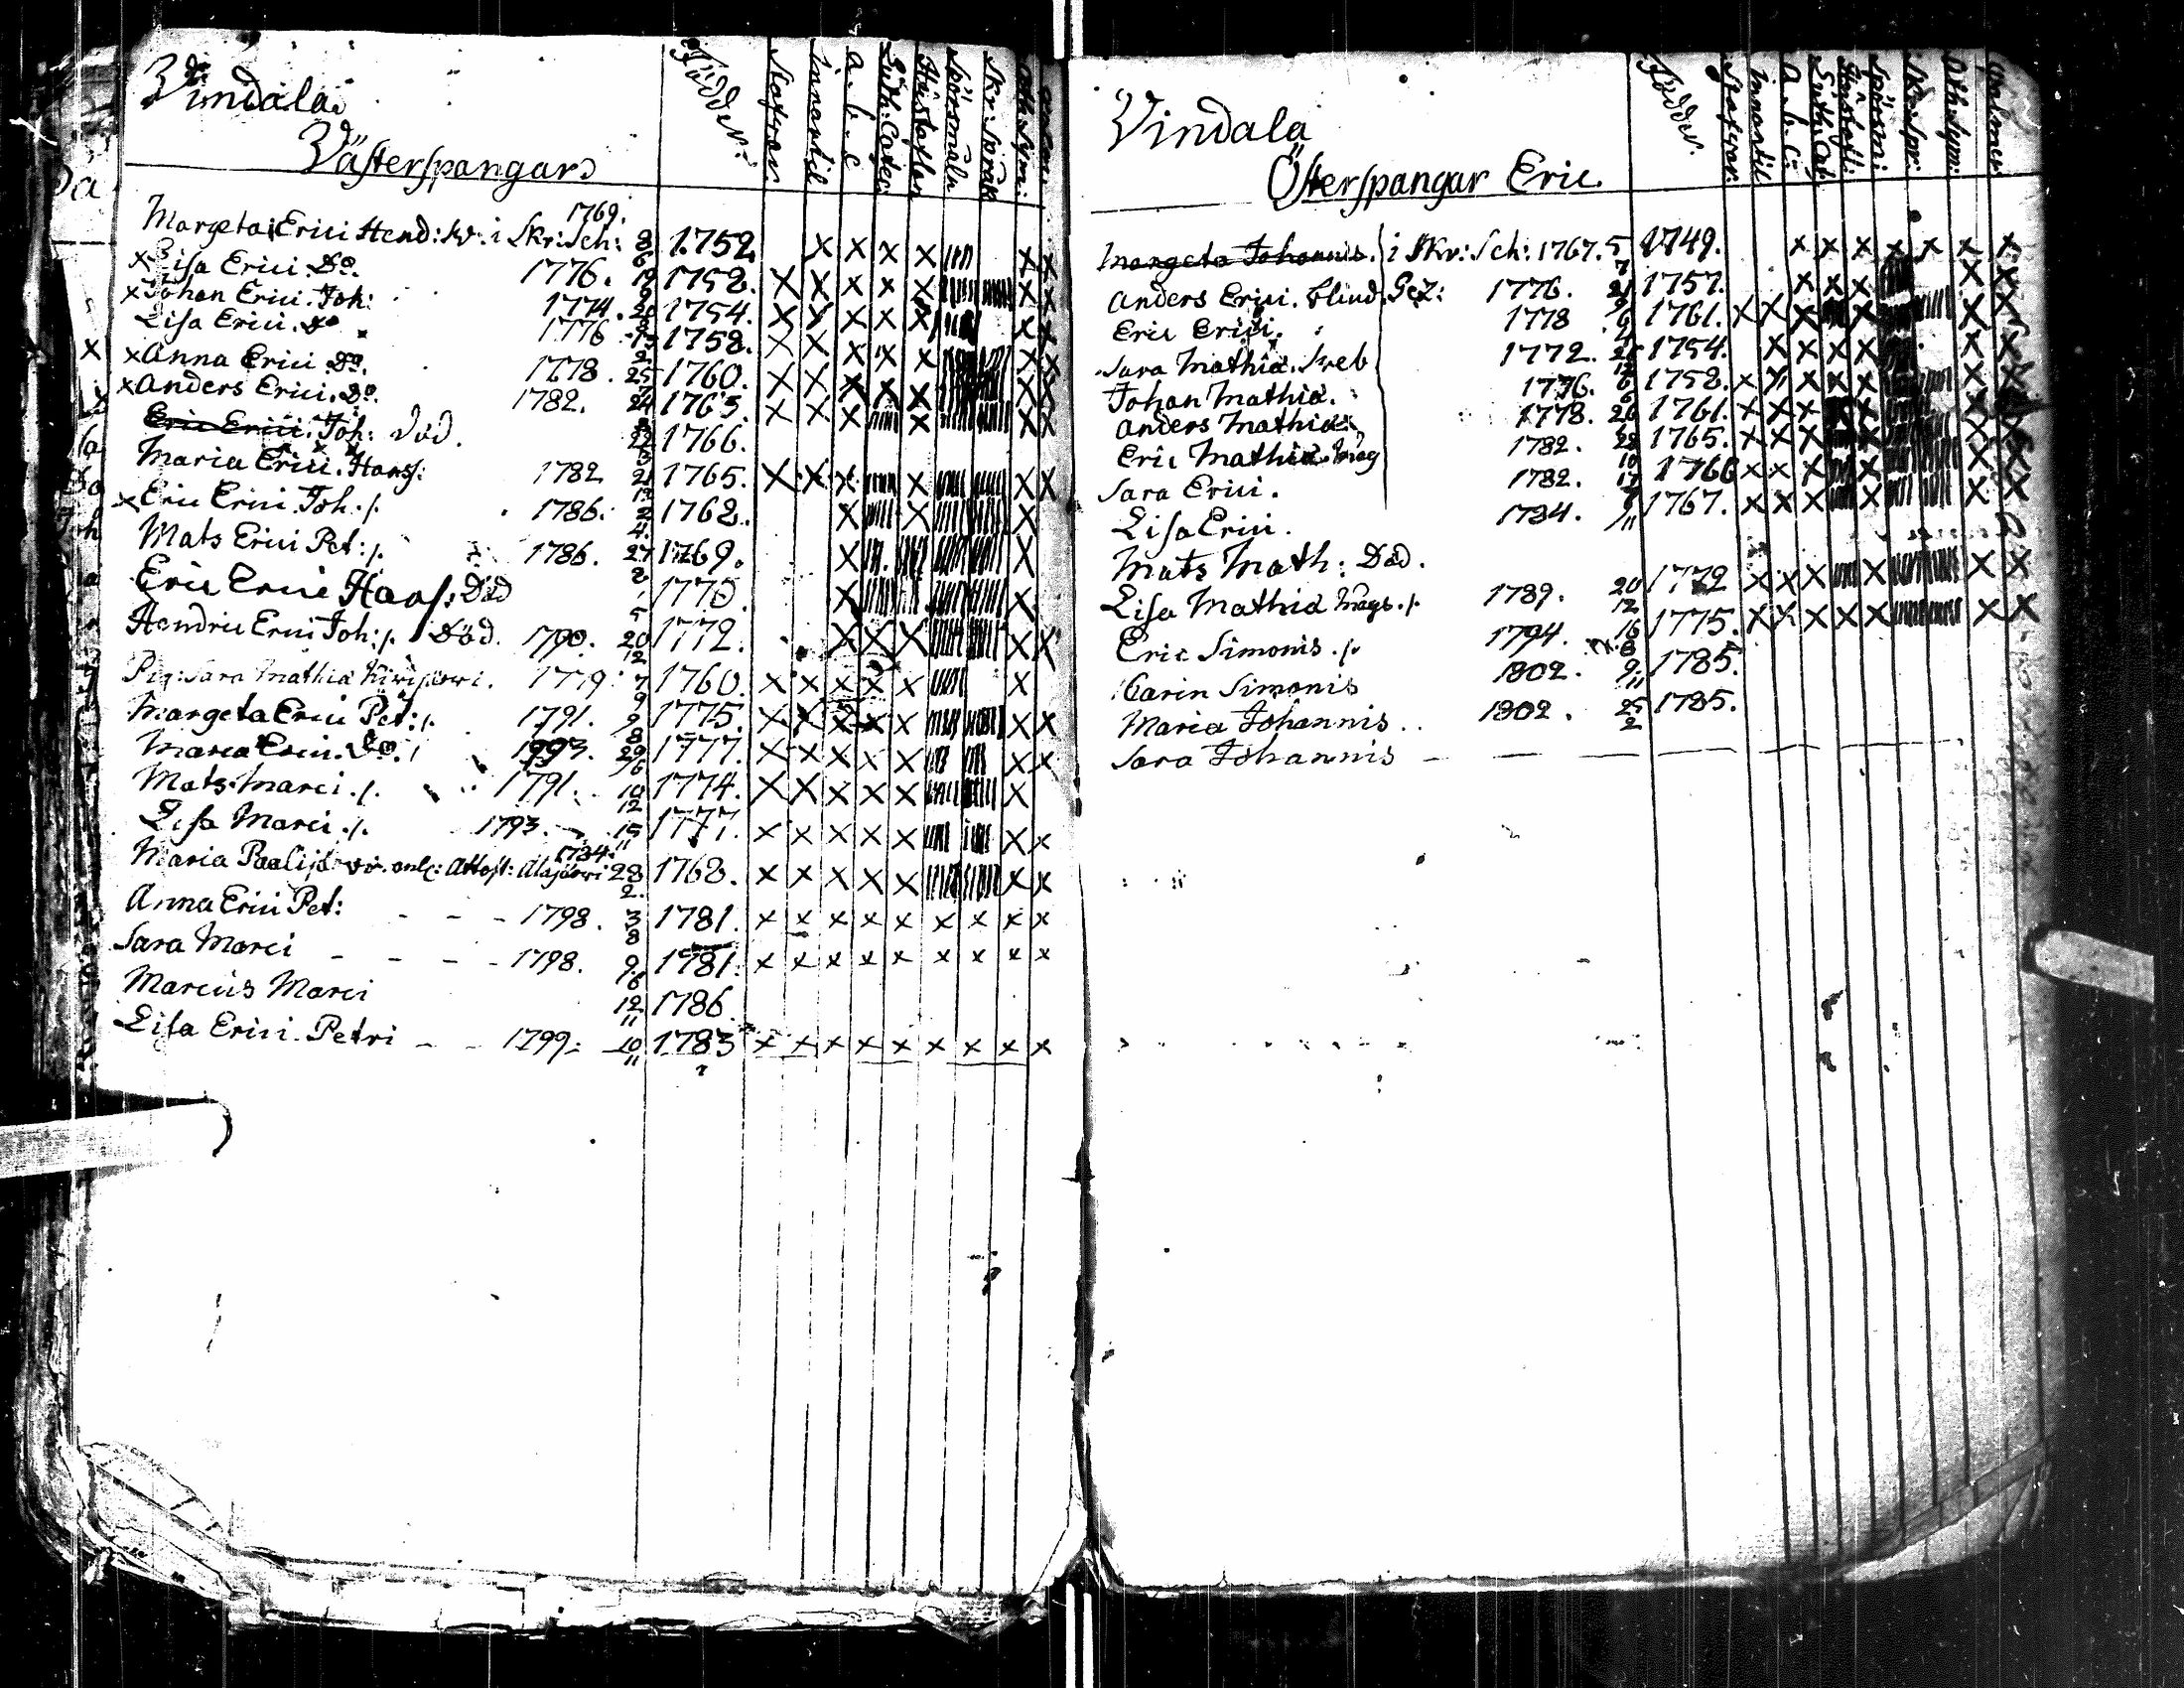 Vindala
Västerspangar
Födde
Stafvar
innantil
a.b.c
Luth: Catec:
Hustaflan
Spörsmåln
Skr: Språk
Ath. Sym:
Margeta Erici Hend: kv: i Skr: Sch: 1769. 8/6 1752. X X X X X X
x Lisa Erici. Do. 1776. 19 1752. X X X X X X X
x Johan Erici. Joh: 1774. 20 1754. X X X X X X X
Lisa Erici. Do 1776 15 1758. X X X X X X X
x Anna Erici. Do. 1778. 25 1760. X X X X X X X
x Anders Erici. Do. 1782. 24 1763. X X X X X X
Eric Erici. Joh: Död. 22 1766.
Maria Erici. Hanss: 1782 21 1765. X X X X X X
x Eric Erici Joh. /. 1786. 2 1762. X X X
Mats Erici Pet: /. 1786. 27 1769. X X
Eric Erici Hans: Död 1770. X X
Hendric Erici Joh: /. Död. 1790. 20/12 1772. X X X X X
Pig: Sara Mathiæ Kivijärvi. 1779 7/9 1760. X X X X X X
Margeta Erici Pet: /. 1791. 2/8 1775. X X X X X X X
Maria Erici. Do. / 1793. 29/6 1777. X X X X X X X
Mats Marci. /. 1791. 10/12 1774. X X X X X X
Lisa Marci. /. 1793. 15/11 1777. X X X X X X X
Maria Paalijä Attest: Alajärvi 1784: 28/2. 1768. X X X X X X X
Anna Erici Pet: - - - 1798. 3/8 1781. x x x x x x x x x
Sara Marci - - - - 1798. 9/6 1781. x x x x x x x x x
Marcus Marci 12/11 1786
Lisa Erici. Petri - - 1799: - 10/11 1783 x x x x x x x x x
Vindala
Österspangar Eric
Födde
Stafvar:
innantil
a.b.c:
Luth. Cat.
Hustafl:
Spörsm:
Skr. Spr:
Ath. Sym:
Psalmer
Margeta Johannis. i Skr: Sch: 1767. 5/7 1749. x x x x x x x
Anders Erici. blind. Gez: 1776. 21/9 1757. X X X X X
Eric Erici. 1778 6 1761. X X X X X X
Sara Mathiæ. Sveb 1772. 25/12 1754. X X X X X X
Johan Mathiæ. 1776. 6/6 1758. X X X X X X X
Anders Mathiæ 1778. 26 1761. X X X X X X
Eric Mathiæ. Mag 1782. 22/10 1765. X X X X X X
Sara Erici. 1782. 17 1766 X X X X X X
Lisa Erici. 1784. 7/11 1767. X X X X X X
Mats Math: Död.
Lisa Mathiæ Mags. /. 1789. 20/12 1772 X X X X X X
Eric Simonis. /. 1794. 16/8 1775. X X X X X X X
Carin Simonis 1802. 9/11 1785.
Maria Johannis .. 1802. 25/2 1785.
Sara Johannis - - - -